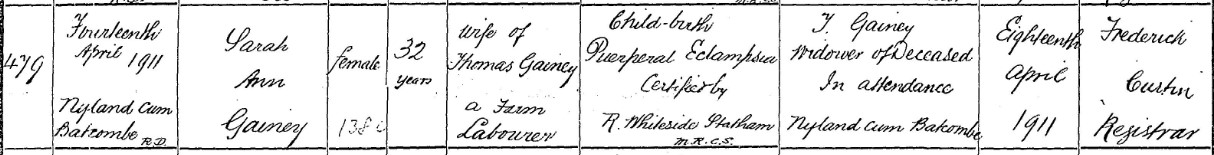 479
Fourteenth
April 1911
Nyland cum
Batcombe R.D.
Sarah
Ann
Gainey
female
138
32
years
Wife of
Thomas Gainey
a Farm
Labourer
Child-birth
Puerperal Eclampsia
Certified by
R. Whiteside Statham
M.R.C.S.
T. Gainey
Widower of Deceased
In attendance
Nyland cum Batcombe
Eighteenth
April
1911
Frederick
Curtin
Registrar